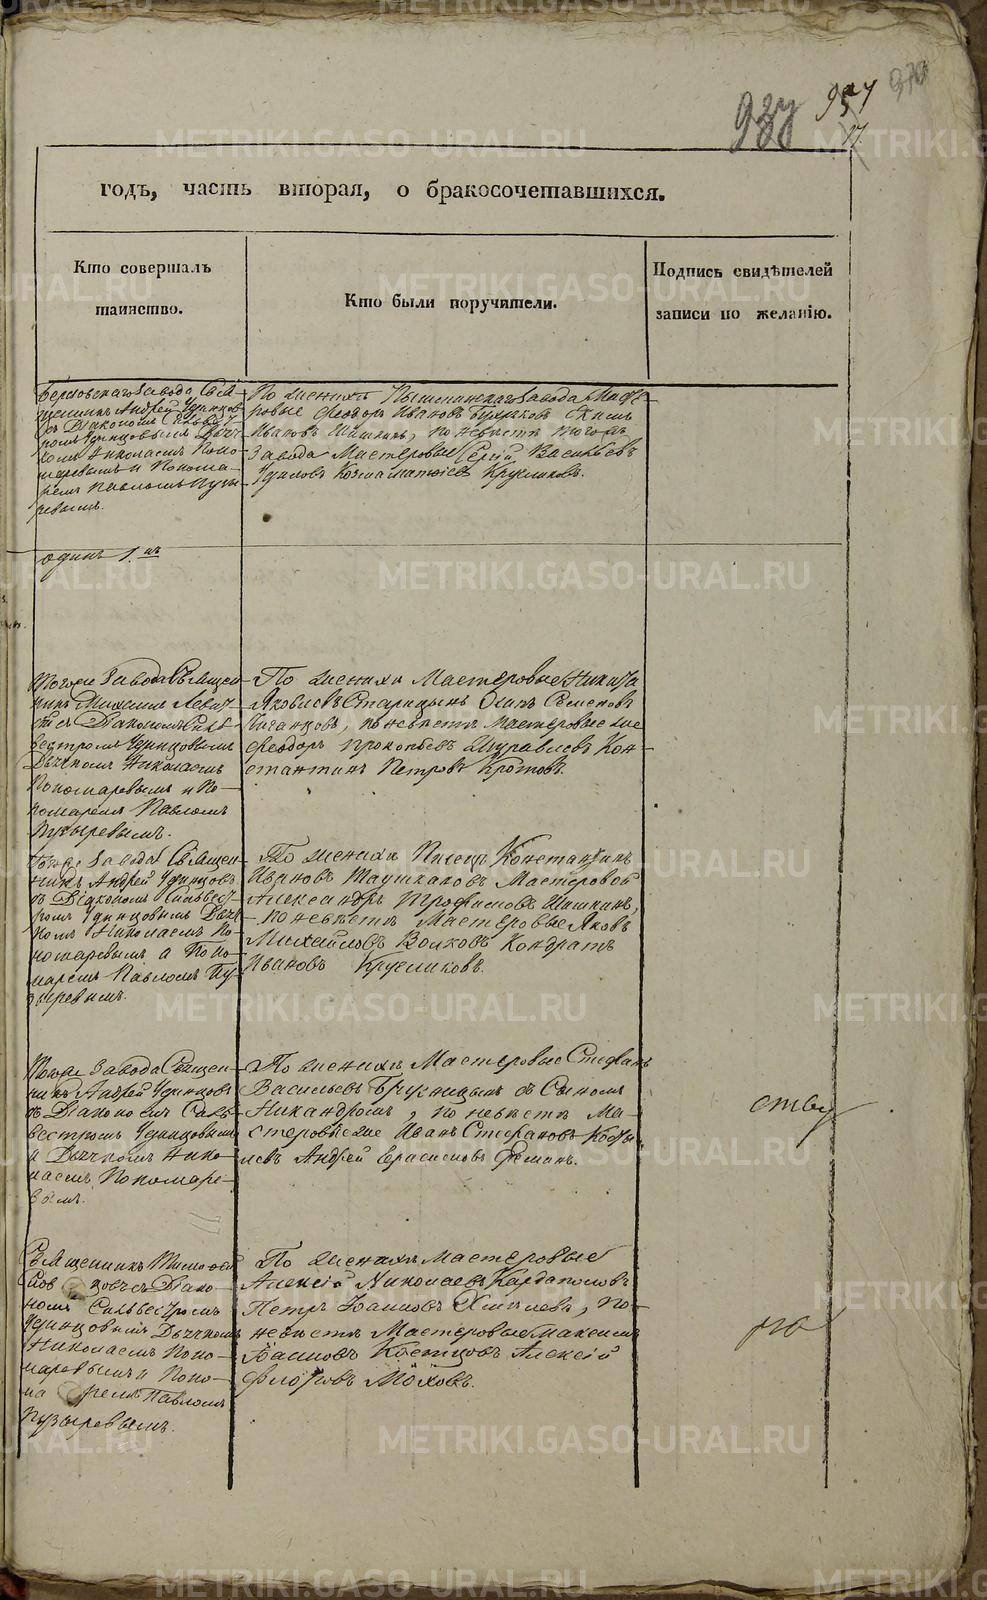 957
17.
970
годъ, часть вторая, о бракосочетавшихся.
Кто совершалъ
таинство.
Кто были поручители.
Подпись свидѣтелей
записи по желанію.
Березовскаго Завода Свя-
щенникъ Андрей Удинцовъ
съ Діакономъ Сильвест-
ромъ Удинцовымъ Дьяч-
комъ Николаемъ Поно-
маревымъ и Понома-
ремъ Павломъ Пузы-
ревымъ.
По женихѣ Пышминскаго Завода Масте-
ровые Феодоръ Ивановъ
Ивановъ Шишкинъ, по невѣстѣ тогожъ
Завода Мастеровые Сергій Васильевъ
Удиловъ Козма Матвѣевъ Кругликовъ.
одинъ 1.нъ
Тогоже Завода Священ-
никъ Михаилъ Левит-
скій съ Діакономъ Силь-
вестромъ Удинцовымъ
Дьячкомъ Николаемъ
Пономаревымъ и По-
номаремъ Павломъ
Пузыревымъ.
По женихѣ Мастеровые Никита
Яковлевъ Старицынъ Осипъ Семеновъ
Цыганцовъ, по невѣстѣ Мастеровые же
Феодоръ Прокопьевъ Журавлевъ Кон-
стантинъ Петровъ Кротовъ.
Тогоже Завода Священ-
никъ Андрей Удинцовъ
съ Діакономъ Сильвест-
ромъ Удинцовымъ Дьяч-
комъ Николаемъ По-
номаревымъ и Поно-
маремъ Павломъ Пу-
зыревымъ.
По женихѣ Писецъ Константинъ
Ивановъ Мастеровой
Александръ Трофимовъ Шишкинъ,
по невѣстѣ Мастеровые Яковъ
Михайловъ Волковъ Кондратъ
Ивановъ Кругликовъ.
Тогоже Завода Священ-
никъ Андрей Удинцовъ
съ Діакономъ Силь-
вестромъ Удинцовымъ
и Дьячкомъ Нико-
лаемъ Пономаре-
вымъ.
По женихѣ Мастеровые Стефанъ
Васильевъ Брусницынъ съ Сыномъ
Никандромъ, по невѣстѣ Ма-
стеровые же Иванъ Стефановъ
Андрей Герасимовъ
ству
Священникъ Тимофей
съ Діако-
номъ Сильвестромъ
Удинцовымъ Дьячкомъ
Николаемъ Поно-
маревымъ и Поно-
маремъ Павломъ
Пузыревымъ.
По женихѣ Мастеровые
Алексій Николаевъ Кардаполовъ
Петръ Іоанновъ Хмѣлевъ, по
невѣстѣ Мастеровые Максимъ
Іоанновъ Костцовъ Алексій
Фроловъ Моховъ.
METRIKI.GASO-URAL.RU